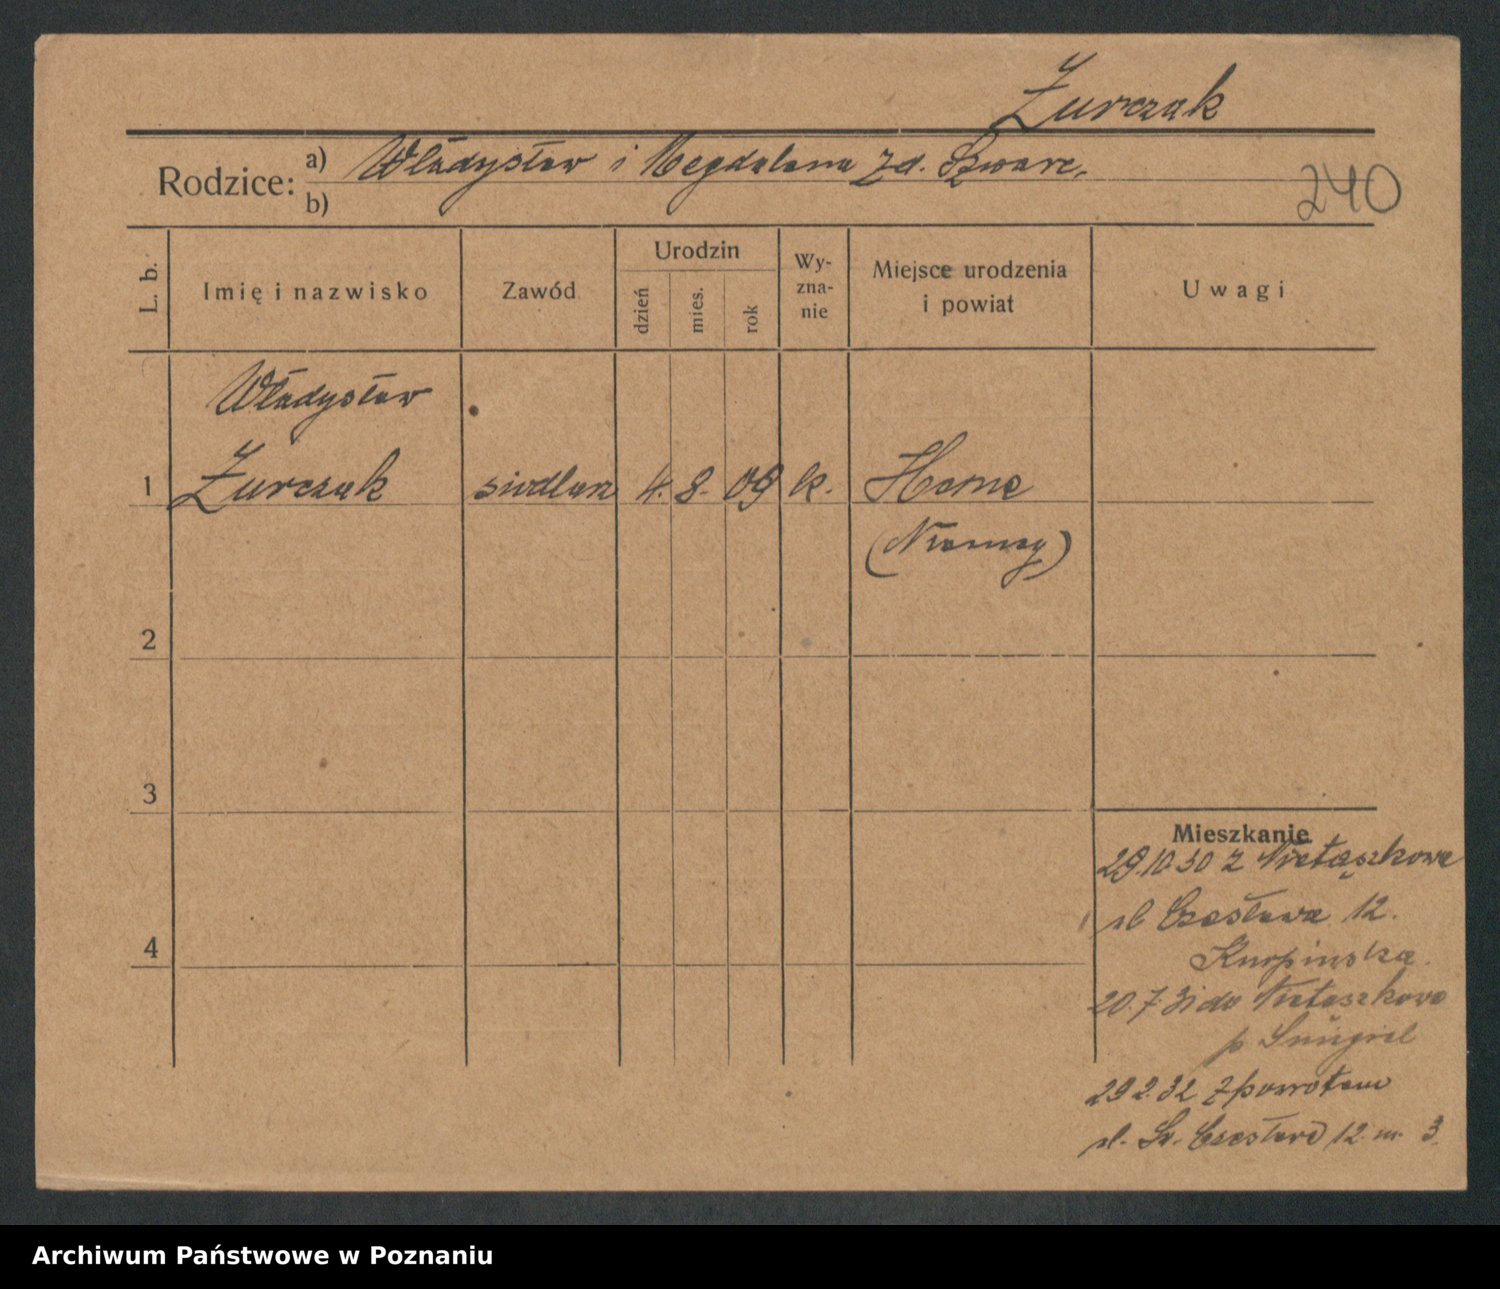 Żurczak
Rodzice: a) Władysław i Magdalena zd. Szwarc.
b)
240
L. b.
Imię i nazwisko
Zawód
Urodzin
dzień
mies.
rok
Wy-
zna-
nie
Miejsce urodzenia
i powiat
Uwagi
Władysław
1 Żurczak siodlarz 4. 8. 09 k. Herne
(Niemcy)
2
3
4
Mieszkanie
29.10.30 z Nietaszkowa
ul Czesława 12.
Kurpinska
20.7.31 do Nietaszkowa
p Smigiel
29 2.32 z powrotem
ul. Św. Czesława 12 m. 3.
Archiwum Państwowe w Poznaniu